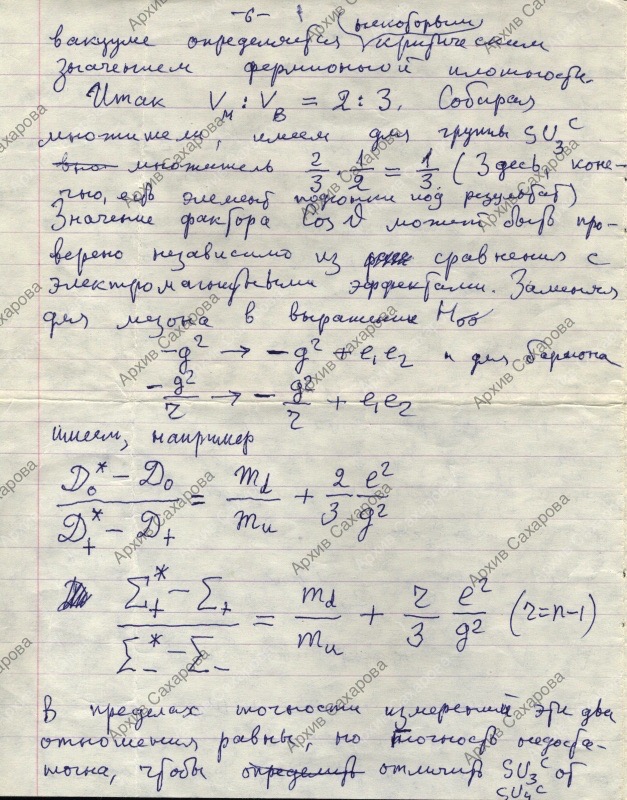 -6-
некоторым
вакууме определяется критическим
значением фермионной плотности.
Итак V_M : V_B = 2 : 3. Собирая
множители, имеем для группы SU_3^C
множитель 2/3 · 1/2 = 1/3. (Здесь, коне-
чно, есть элемент подгонки под результат)
Значение фактора Cos ϑ может быть про-
верено независимо из сравнения с
электромагнитными эффектами. Заменяя
для мезона в выражении
-g² → -g² + e₁e₂ и для бариона
-g²/r → -g²/r + e₁e₂
имеем, например
(D₀* - D₀)/(D₊* - D₊) = m_d/m_u + 2/3 e²/g²
(Σ₊* - Σ₊)/(Σ₋* - Σ₋) = m_d/m_u + r/3 e²/g² (r=n-1)
В пределах точности измерений эти два
отношения равны, но точность недоста-
точна, чтобы определить отличить SU_3^C от
SU_4^C
Архив Сахарова